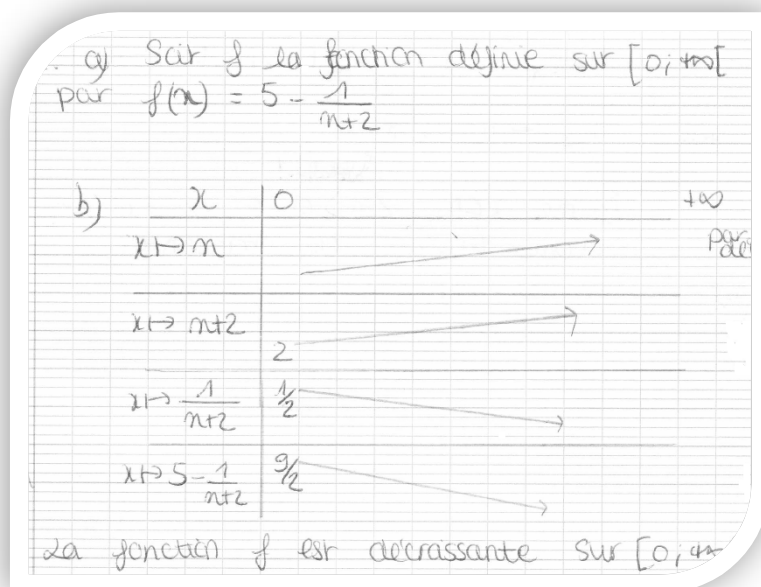 a) Soit f la fonction définie sur [0; +∞[
par f(x) = 5 - 1/(n+2)
b) x | 0 +∞
x ↦ n
x ↦ n+2 2
x ↦ 1/(n+2) 1/2
x ↦ 5 - 1/(n+2) 9/2
La fonction f est décraissante sur [0; +∞